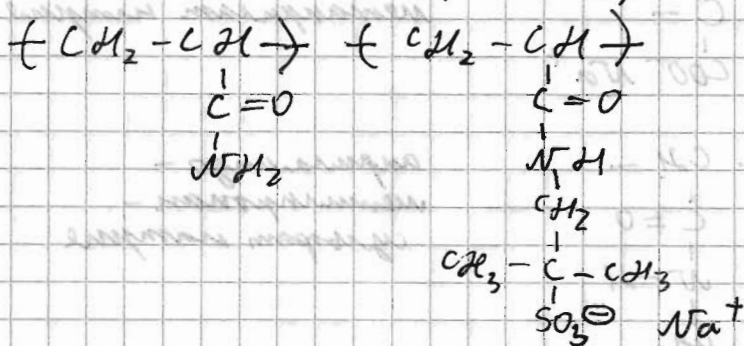 (-CH₂-CH-) (-CH₂-CH-)
C=O C=O
NH₂ NH
CH₂
CH₃-C-CH₃
SO₃⊖ Na⁺